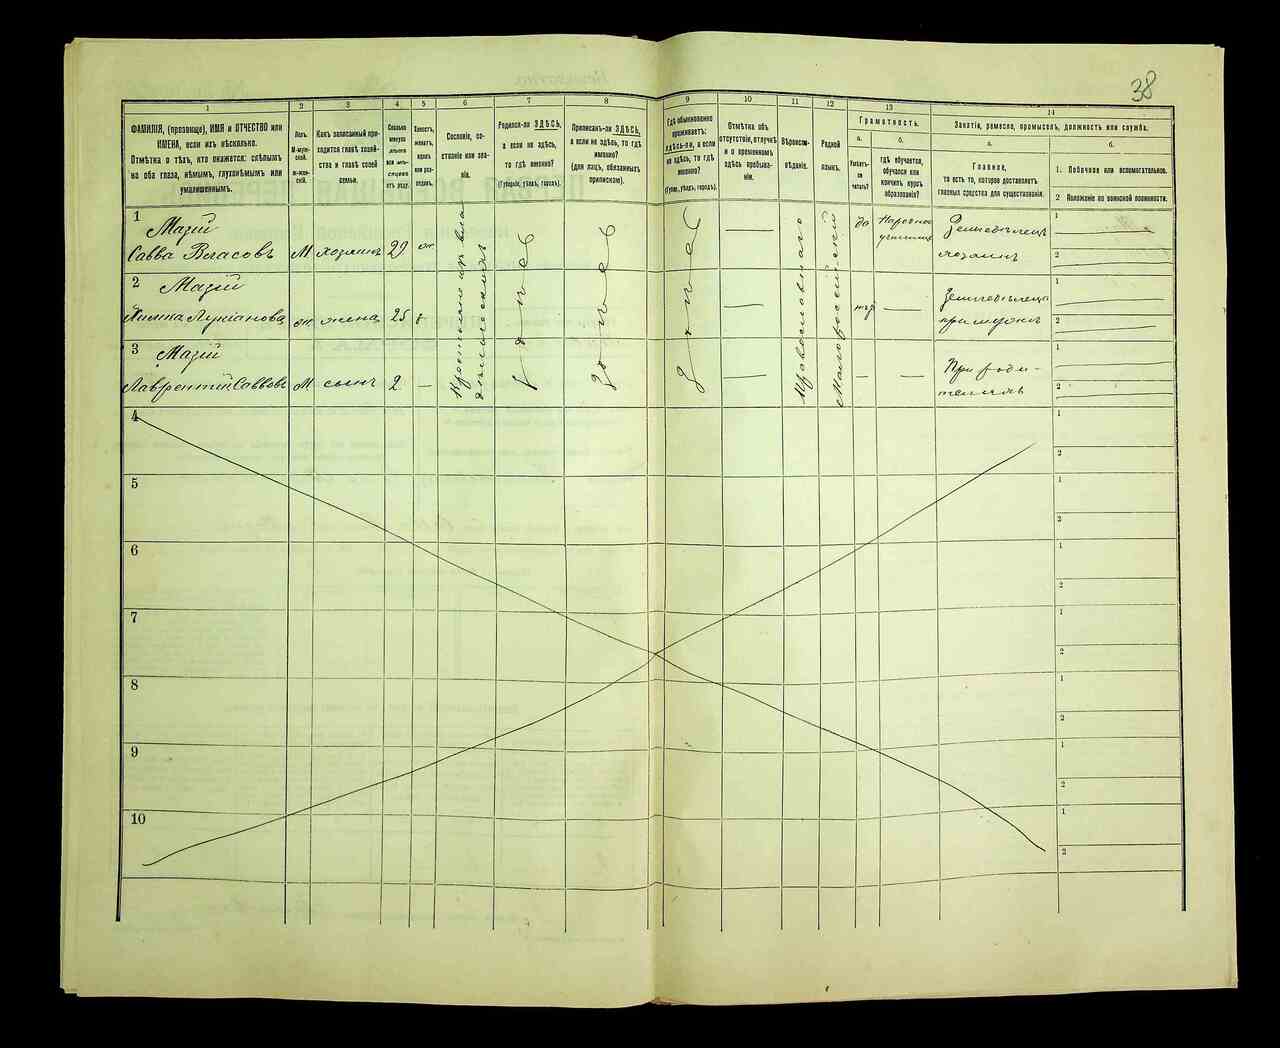 38
1 2 3 4 5 6 7 8 9 10 11 12 13 14
ФАМИЛІЯ, (прозвище), ИМЯ и ОТЧЕСТВО или
ИМЕНА, если ихъ нѣсколько.
Отмѣтка о тѣхъ, кто окажется: слѣпымъ
на оба глаза, нѣмымъ, глухонѣмымъ или
умалишеннымъ.
Полъ.
М-муж-
ской.
ж-жен-
скій.
Какъ записанный при-
ходится главѣ хозяй-
ства и главѣ своей
семьи.
Сколько
минуло
лѣтъ
или мѣ-
сяцевъ
отъ роду.
Холостъ,
женатъ,
вдовъ
или раз-
веденъ.
Сословіе, со-
стояніе или зва-
ніе.
Родился-ли ЗДѢСЬ,
а если не здѣсь,
то гдѣ именно?
(Губернія, уѣздъ, городъ).
Приписанъ-ли ЗДѢСЬ,
а если не здѣсь, то гдѣ
именно?
(для лицъ, обязанныхъ
припискою).
Гдѣ обыкновенно
проживаетъ:
здѣсь-ли, а если
не здѣсь, то гдѣ
именно?
(Губер., уѣздъ, городъ).
Отмѣтка объ
отсутствіи, отлучкѣ
и о временномъ
здѣсь пребыва-
ніи.
Вѣроиспо-
вѣданіе.
Родной
языкъ.
Грамотность.
а.
Умѣетъ-
ли
читать?
б.
гдѣ обучается,
обучался или
кончилъ курсъ
образованія?
Занятіе, ремесло, промыселъ, должность или служба.
а.
Главное,
то есть то, которое доставляетъ
главныя средства для существованія.
б.
1. Побочное или вспомогательное.
2 Положеніе по воинской повинности.
1 Мазій
Савва Власовъ М хозяинъ 29 ж да Народное училище Земледѣлецъ хозяинъ
1
2
2 Мазій
Лукіанова ж жена 25 Земледѣлецъ
1
2
3 Мазій
Лаврентій Саввовъ М сынъ 2 — — — При роди-
телях
1
2
здѣсь
здѣсь
здѣсь
Православнаго
Малороссійскій
4
1
2
5
1
2
6
1
2
7
1
2
8
1
2
9
1
2
10
1
2